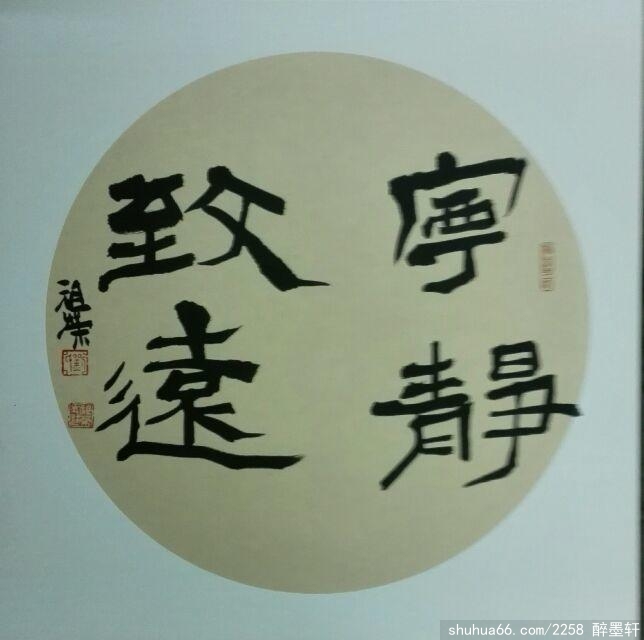 寧靜
致遠
祖荣
shuhua66.com/2258 醉墨轩